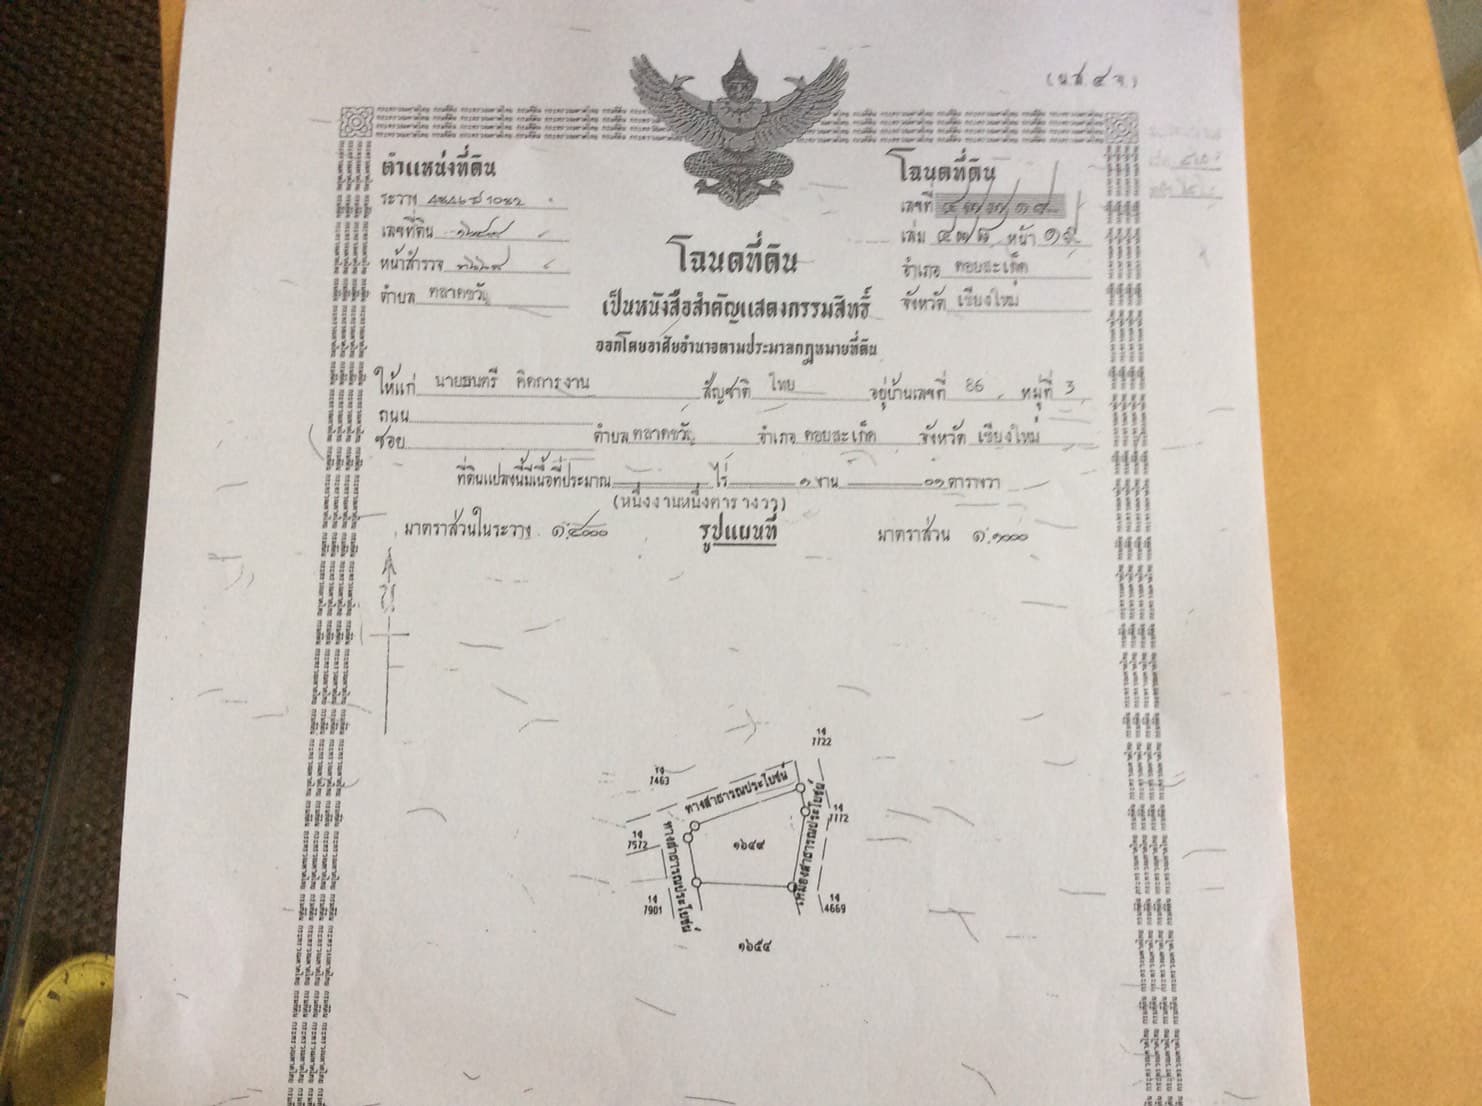 (น.ส. ๔ จ.)
ตำแหน่งที่ดิน
โฉนดที่ดิน
ระวาง
เลขที่
เลขที่ดิน ๑๖๔๙
เล่ม ๔๗๘ หน้า ๑๙
หน้าสำรวจ
โฉนดที่ดิน
อำเภอ ดอยสะเก็ด
ตำบล ตลาดขวัญ
จังหวัด เชียงใหม่
เป็นหนังสือสำคัญแสดงกรรมสิทธิ์
ออกโดยอาศัยอำนาจตามประมวลกฎหมายที่ดิน
ให้แก่ นายมนตรี คิดการงาน สัญชาติ ไทย อยู่บ้านเลขที่ 86 หมู่ที่ 3
ถนน
ซอย ตำบล ตลาดขวัญ อำเภอ ดอยสะเก็ด จังหวัด เชียงใหม่
ที่ดินแปลงนี้มีเนื้อที่ประมาณ ไร่ ๑ งาน ๐๑ ตารางวา
(หนึ่งงานหนึ่งตารางวา)
มาตราส่วนในระวาง ๑:๔๐๐๐ รูปแผนที่ มาตราส่วน ๑:๑๐๐๐
น
วจ
7722
วจ
7463
ทางสาธารณประโยชน์
วจ
7772
วจ
7572
ทางสาธารณประโยชน์
๑๖๔๙
เหมืองสาธารณประโยชน์
วจ
7901
วจ
4669
๑๖๕๔